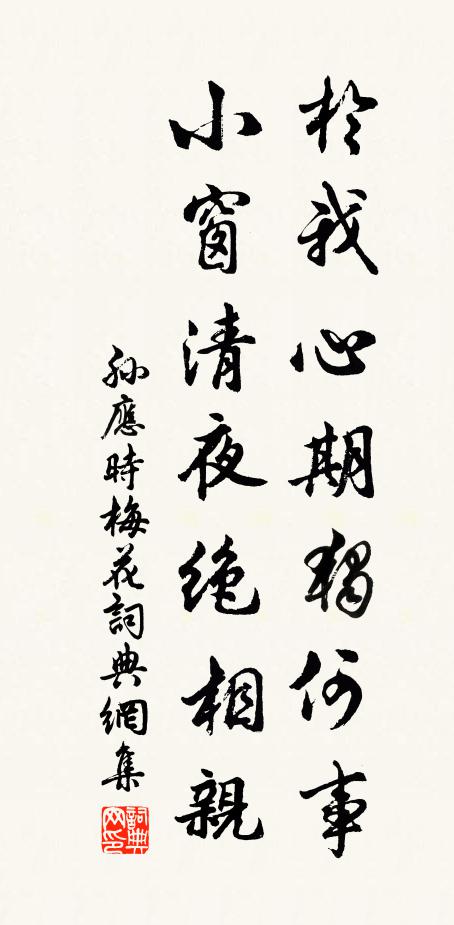 於我心期獨何事
小窗清夜絕相親
孫應時梅花詞典網集
詞典网印